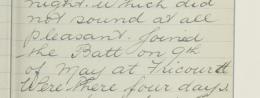 night. which did
not sound at all
pleasant. Joined
the Batt on 9th
of May at Fricourt
Were there four days